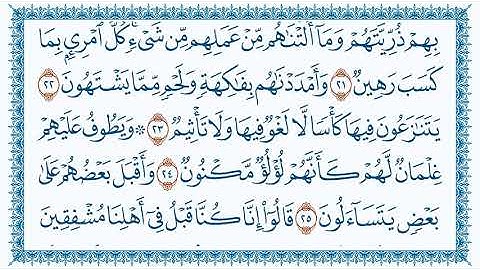 بِهِمْ ذُرِّيَّتَهُمْ وَمَآ أَلَتْنَٰهُم مِّنْ عَمَلِهِم مِّن شَىْءٍ ۚ كُلُّ ٱمْرِئٍۭ بِمَا
كَسَبَ رَهِينٌ ٢١ وَأَمْدَدْنَٰهُم بِفَٰكِهَةٍ وَلَحْمٍ مِّمَّا يَشْتَهُونَ ٢٢
يَتَنَٰزَعُونَ فِيهَا كَأْسًا لَّا لَغْوٌ فِيهَا وَلَا تَأْثِيمٌ ٢٣ ۞ وَيَطُوفُ عَلَيْهِمْ
غِلْمَانٌ لَّهُمْ كَأَنَّهُمْ لُؤْلُؤٌ مَّكْنُونٌ ٢٤ وَأَقْبَلَ بَعْضُهُمْ عَلَىٰ
بَعْضٍ يَتَسَآءَلُونَ ٢٥ قَالُوٓا۟ إِنَّا كُنَّا قَبْلُ فِىٓ أَهْلِنَا مُشْفِقِينَ